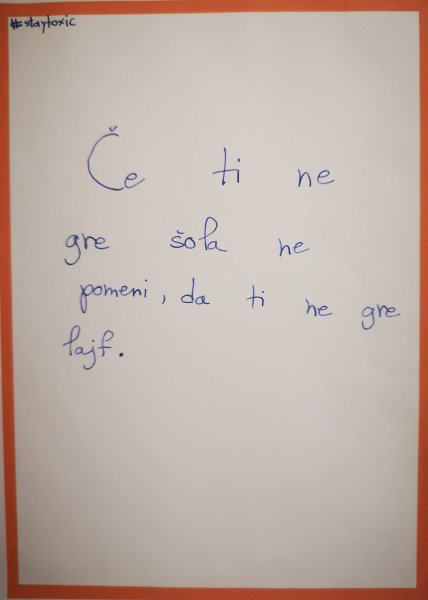 #staytoxic
Če ti ne
gre šola ne
pomeni, da ti ne gre
lajf.